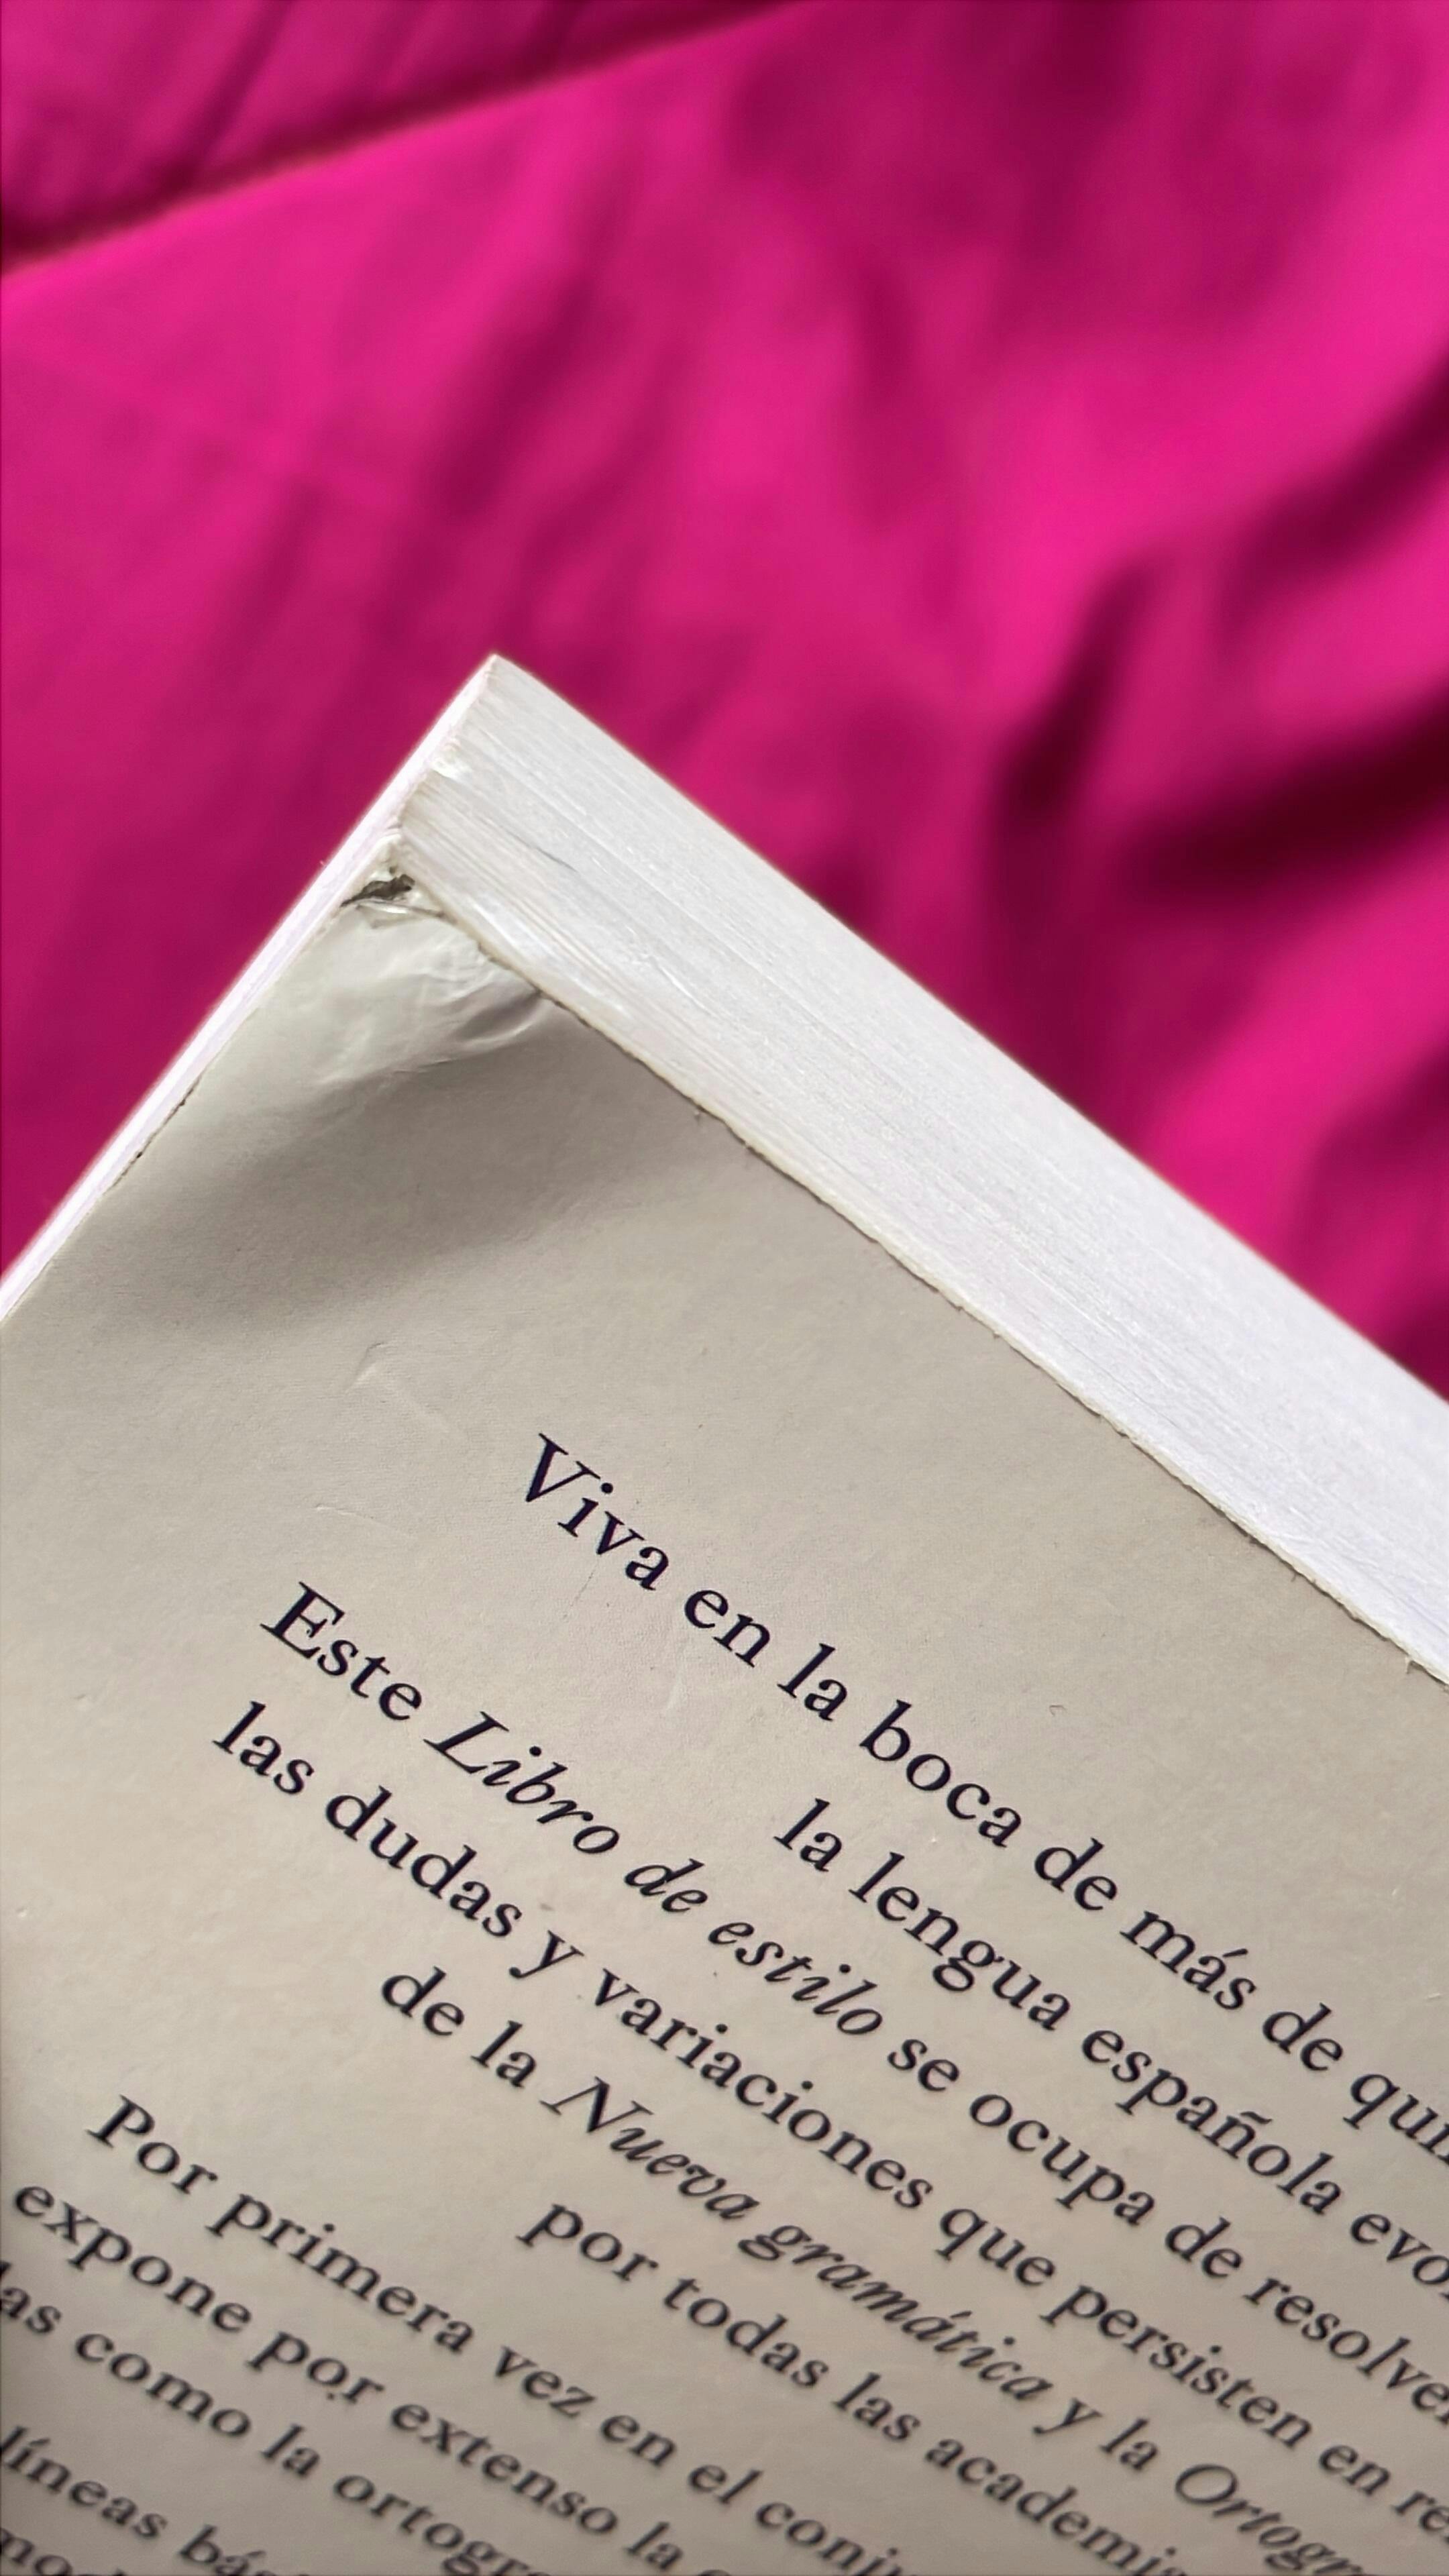 Viva en la boca de más de
la lengua española
Este Libro de estilo se ocupa de
las dudas y variaciones que persisten en
de la Nueva gramática y la
por todas las
Por primera vez en el
expone por extenso la
como la
líneas